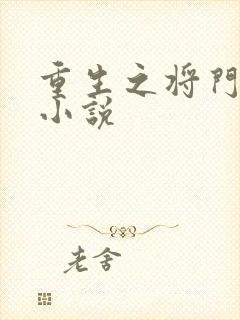 重生之将門
小説
老舍